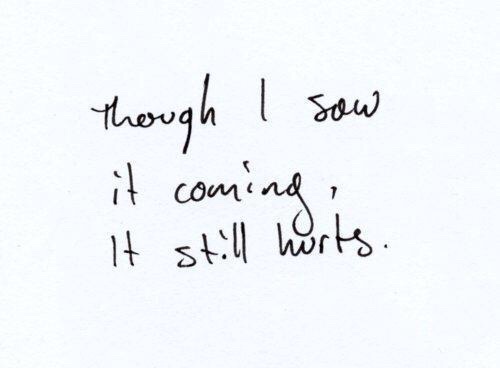 though I saw
it coming,
It still hurts.